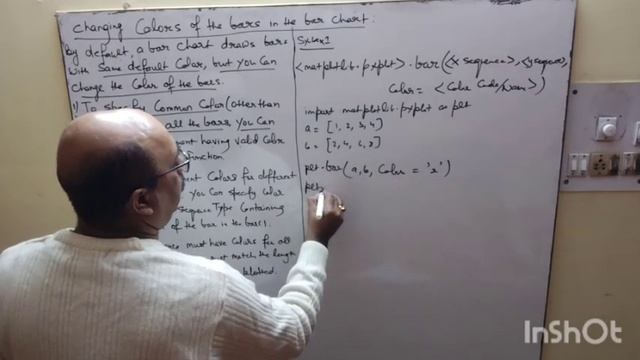 Changing Colors of the bars in the bar chart.
By default, a bar chart draws bars
with same default Color, but you Can
change the Color of the bars.
1) To specify Common Color (other than
all the bars, you Can
having valid Color
function
Colors for different
you Can specify Color
sequence Type Containing
of the bar in the bars).
must have Colors for all
must match the length
plotted.
Syntax 1
<matplotlib.pyplot>.bar(<x sequence>, <y sequence>,
Color = <Color Code/name>)
import matplotlib.pyplot as plt
a = [1, 2, 3, 4]
b = [2, 4, 6, 8]
plt.bar(a, b, Color = 'r')
plt
InShOt